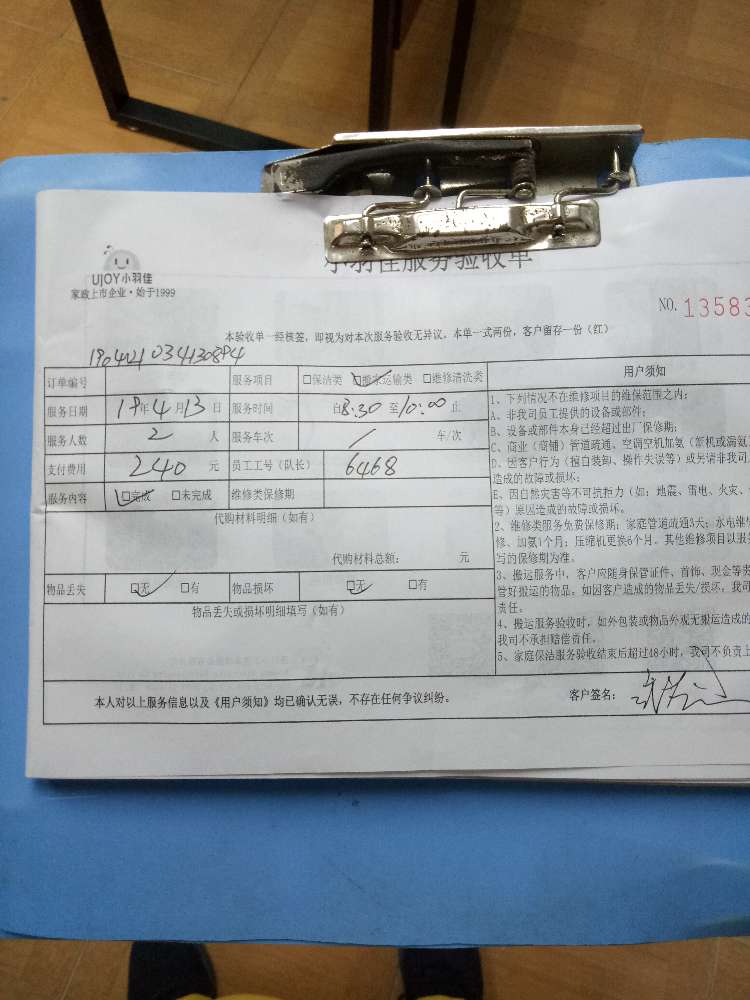 小羽佳服务验收单
UJOY小羽佳
家政上市企业·始于1999
NO. 13583
本验收单一经核签，即视为对本次服务验收无异议，本单一式两份，客户留存一份（红）
订单编号
服务项目 □保洁类 □搬家运输类 □维修清洗类
用户须知
服务日期 19年4月13日 服务时间 自8:30至10:00止
服务人数 2 人 服务车次 / 车/次
支付费用 240 元 员工工号（队长） 6468
服务内容 □完成 □未完成 维修类保修期
代购材料明细（如有）
代购材料总额： 元
物品丢失 □无 □有 物品损坏 □无 □有
物品丢失或损坏明细填写（如有）
1、下列情况不在维修项目的维保范围之内：
A、非我司员工提供的设备或部件；
B、设备或部件本身已经超过出厂保修期；
C、商业（商铺）管道疏通、空调空机加氨（新机或漏氨
D、因客户行为（擅自装卸、操作失误等）或另请非我司
造成的故障或损坏；
E、因自然灾害等不可抗拒力（如：地震、雷电、火灾、
等）原因造成的故障或损坏。
2、维修类服务免费保修期：家庭管道疏通5天；水电维
修、加氨1个月；压缩机更换6个月。其他维修项目以服
写的保修期为准。
3、搬运服务中，客户应随身保管证件、首饰、现金等贵
管好搬运的物品。如因客户造成的物品丢失/损坏，我司
责任。
4、搬运服务验收时，如外包装或物品外观无搬运造成的
我司不承担赔偿责任。
5、家庭保洁服务验收结束后超过48小时，我司不负责上
本人对以上服务信息以及《用户须知》均已确认无误，不存在任何争议纠纷。
客户签名：